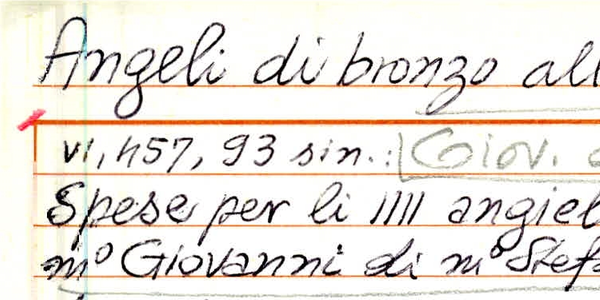 Angeli di bronzo all
VI, 457, 93 sin.: Giov. d
Spese per li IIII angiel
m° Giovanni di m° Stefa